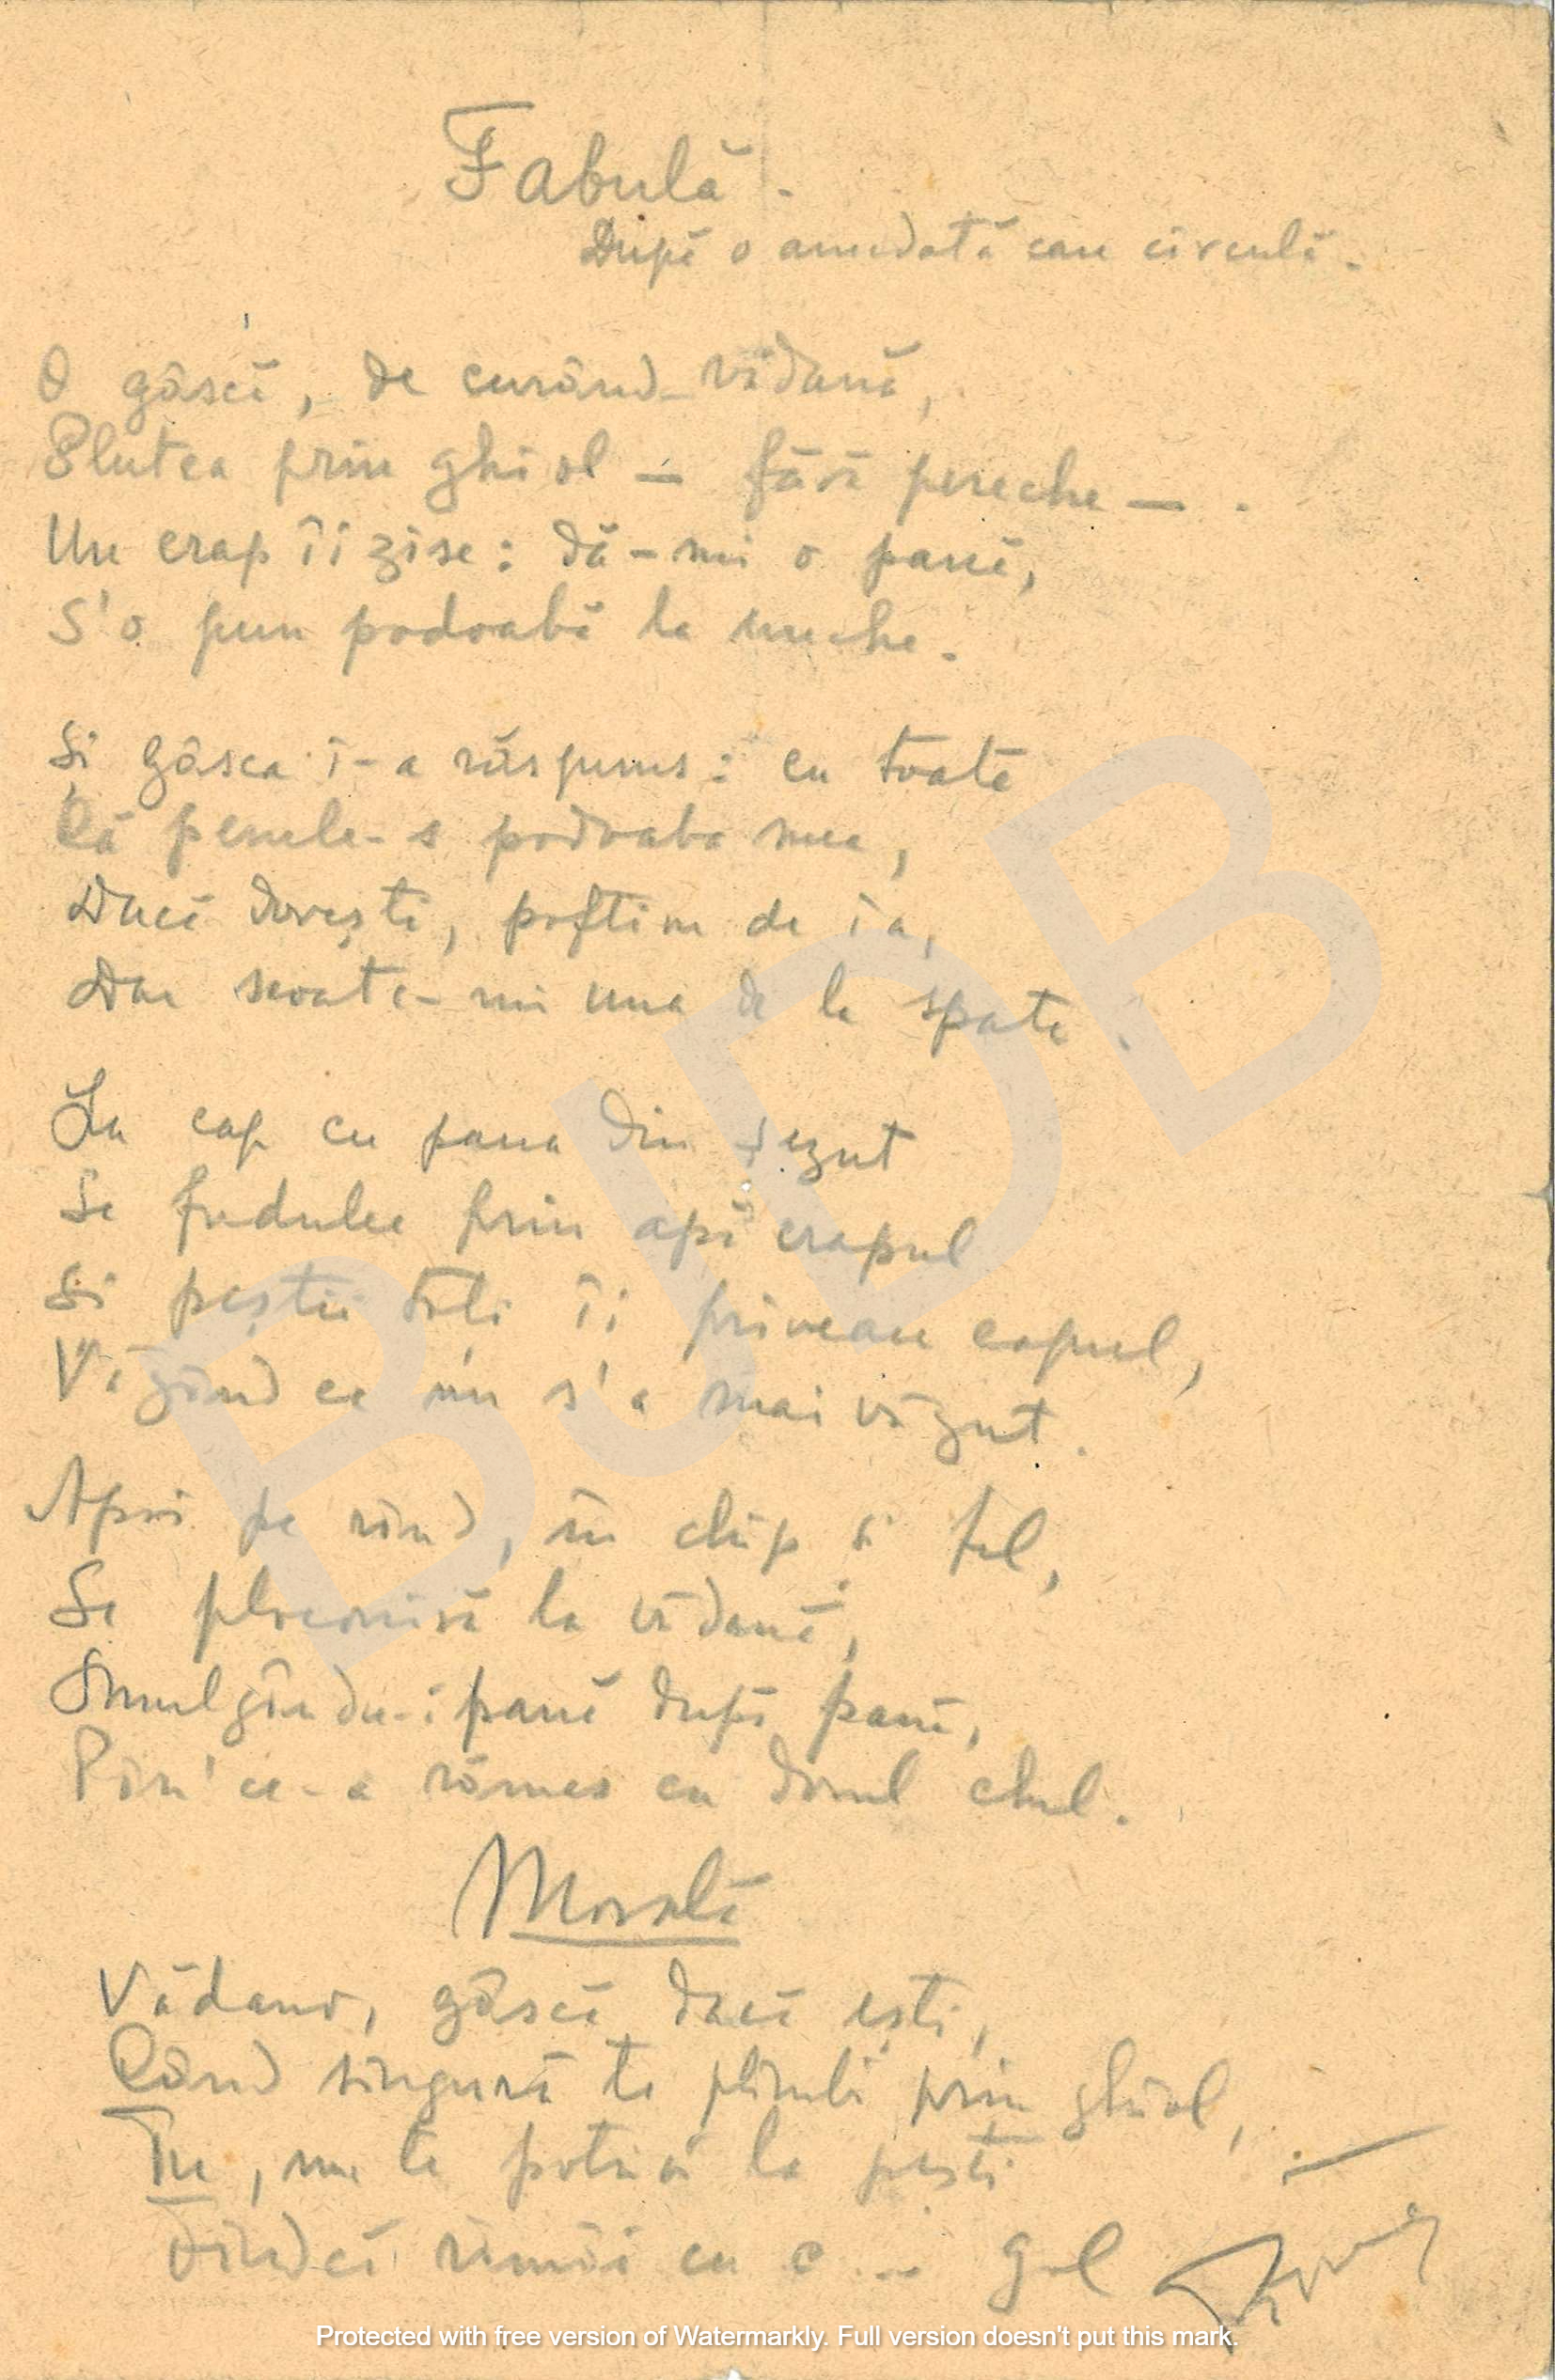 Fabulă.
După o anecdotă care circulă.
O gâscă, de curând vădană,
Plutea prin ghiol – fără pereche – .
Un crap îi zise: dă-mi o pană,
S'o pun podoabă la ureche.
Și gâsca i-a răspuns: cu toate
Că penele-s podoaba mea,
Dacă dorești, poftim de ia,
Dar scoate-mi una de la spate.
La cap cu pana din șezut
Se fudulea prin apă crapul
Și peștii toți îi priveau capul,
Văzând ce nu s'a mai văzut.
Apoi pe rând, în chip și fel,
Se ploconiră la vădană,
Smulgându-i pană după pană,
Pân' ce-a rămas cu dosul chel.
Morală
Vădano, gâscă dacă ești,
Când singură te plimbi prin ghiol,
Tu, nu te potrivi la pești
Fiindcă rămâi cu c... gol
BJDB
Protected with free version of Watermarkly. Full version doesn't put this mark.